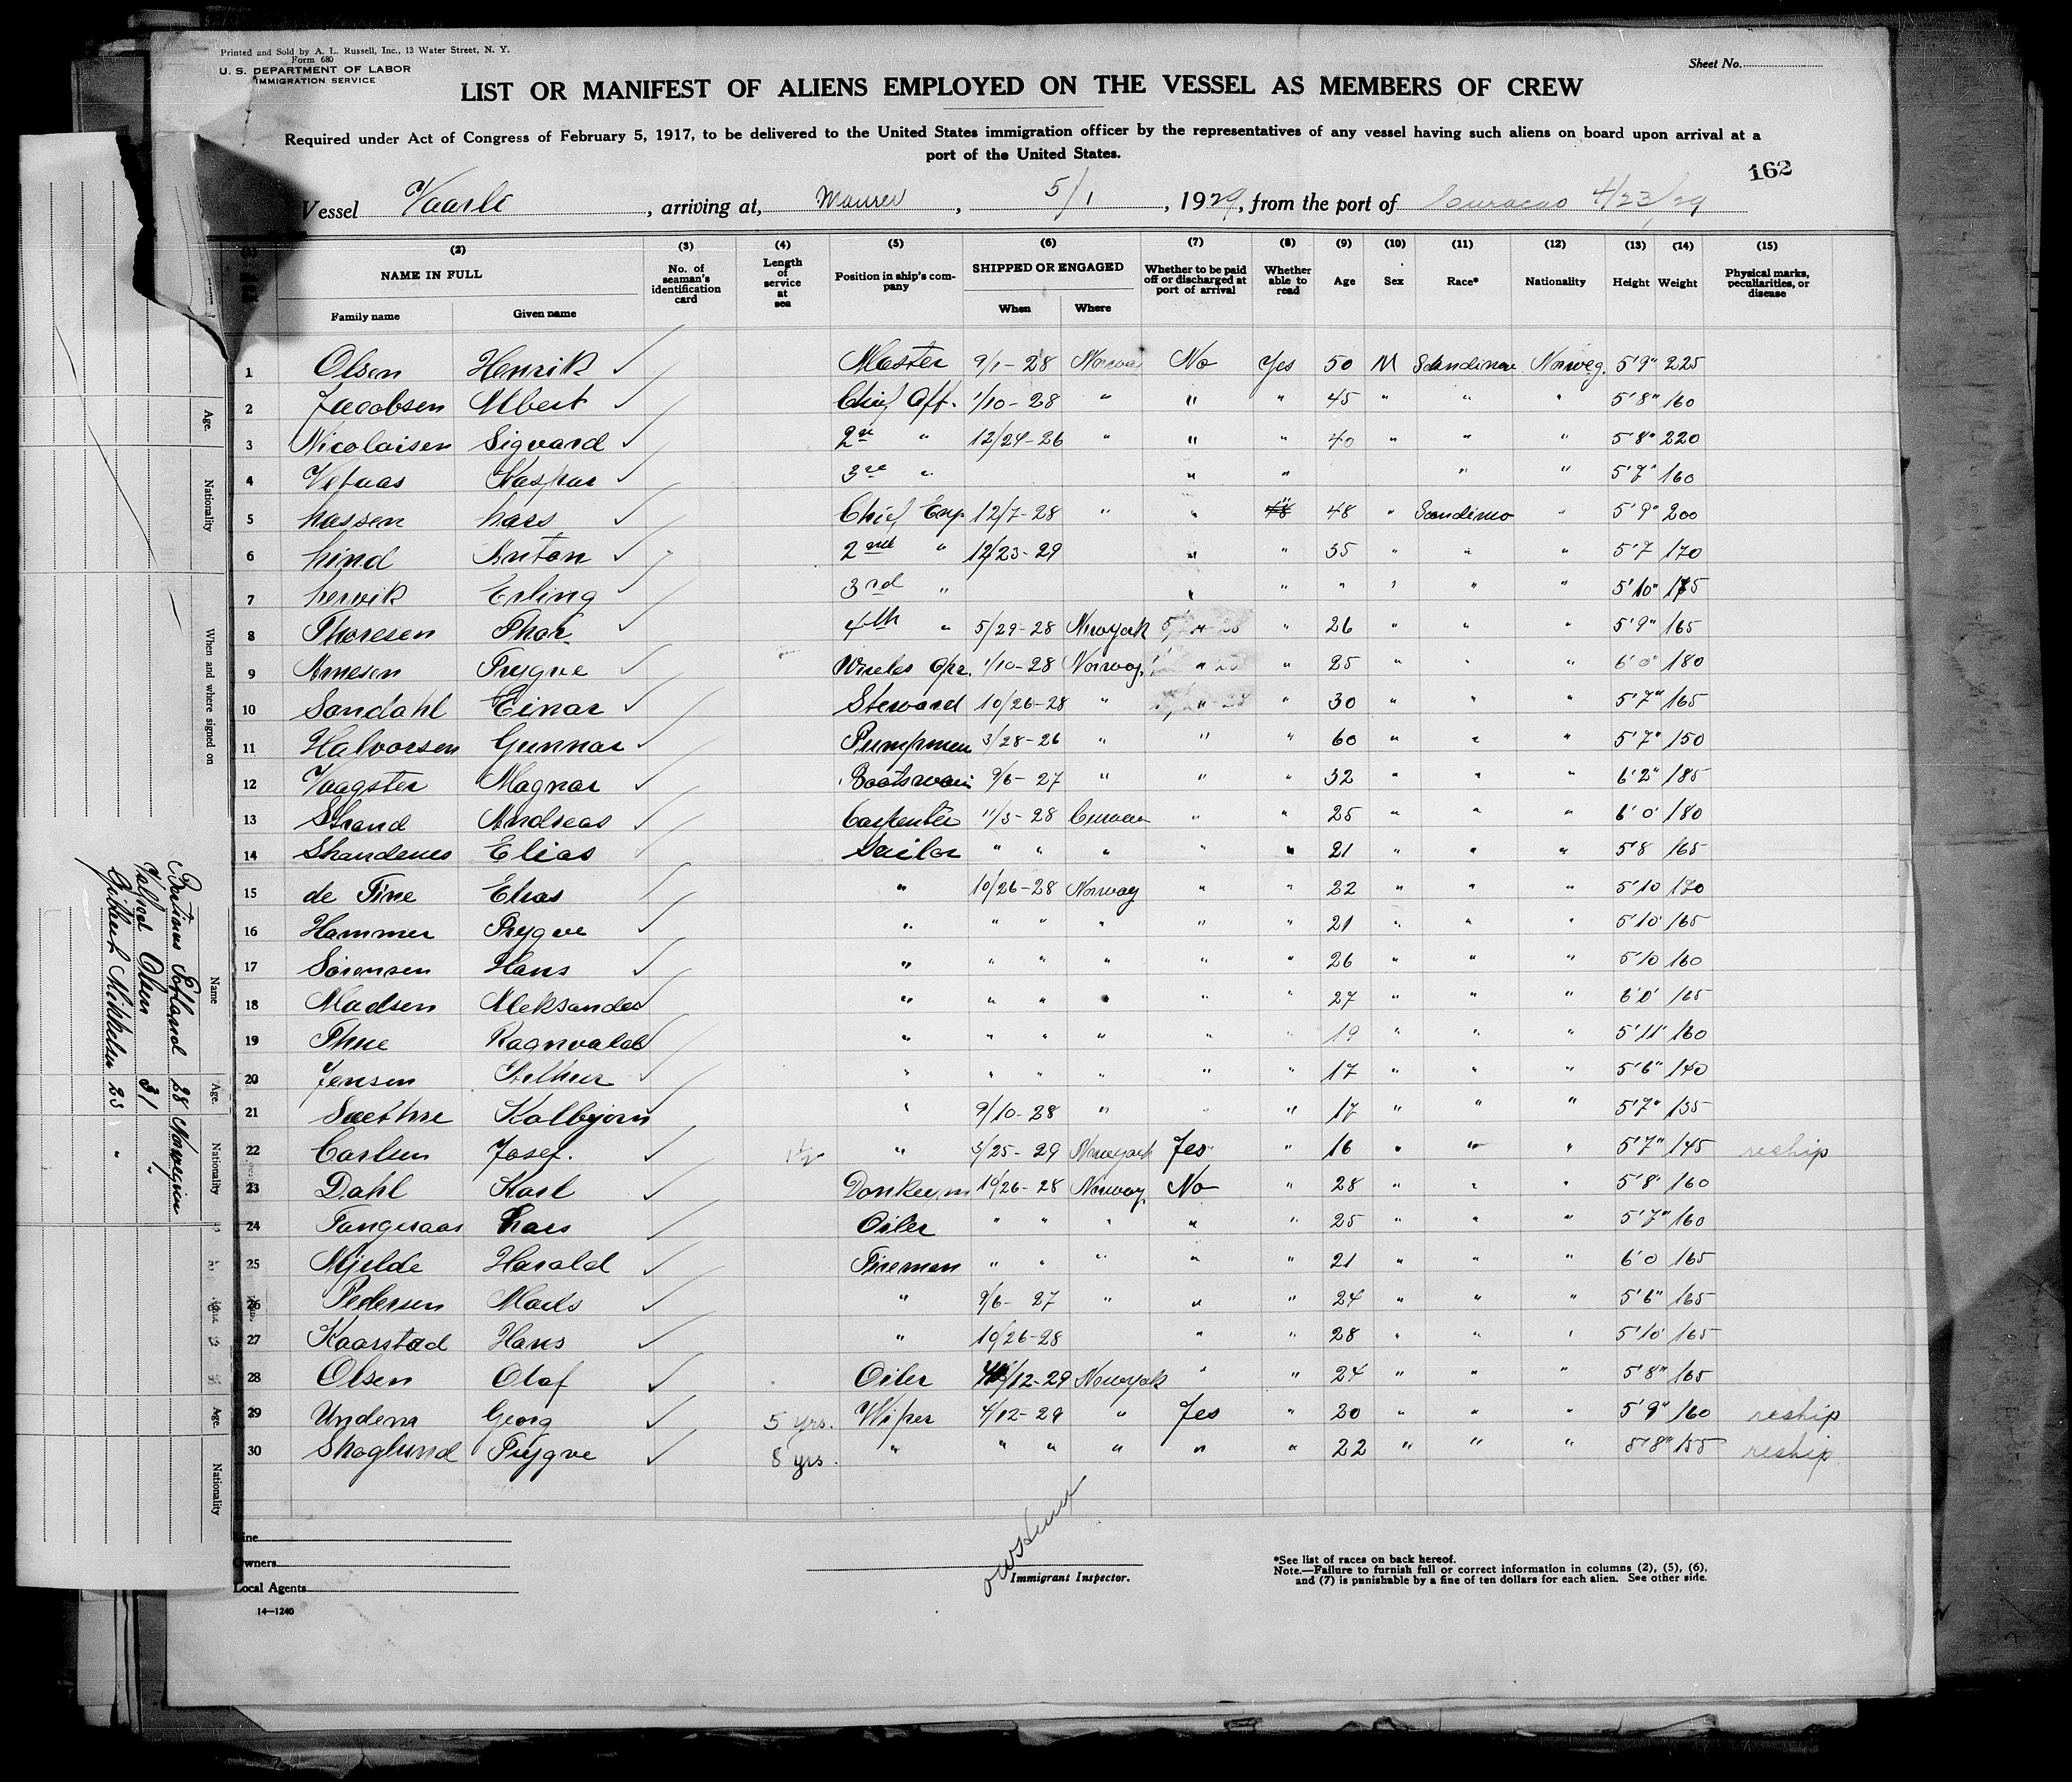 Printed and Sold by A. L. Russell, Inc., 13 Water Street, N. Y.
Form 680
U. S. DEPARTMENT OF LABOR
IMMIGRATION SERVICE
Sheet No.
LIST OR MANIFEST OF ALIENS EMPLOYED ON THE VESSEL AS MEMBERS OF CREW
Required under Act of Congress of February 5, 1917, to be delivered to the United States immigration officer by the representatives of any vessel having such aliens on board upon arrival at a
port of the United States.
162
Vessel Vaarli, arriving at, Maurer, 5/1, 1929, from the port of Curacao 4/23/29
(2) (3) (4) (5) (6) (7) (8) (9) (10) (11) (12) (13) (14) (15)
NAME IN FULL No. of seaman's identification card Length of service at sea Position in ship's company SHIPPED OR ENGAGED Whether to be paid off or discharged at port of arrival Whether able to read Age Sex Race* Nationality Height Weight Physical marks, peculiarities, or disease
Family name Given name When Where
1 Olsen Henrik Master 9/1-28 Norway No Yes 50 M Norweg. 5'9" 225
2 Jacobsen Albert Chief Off. 1/10-28 " " " 45 " " " 5'8" 160
3 Nicolaisen Sigvard 2nd " 12/24-26 " " " 40 " " " 5'8" 220
4 Kaspar 3rd " " " " " 5'7" 160
5 Lassen Lars Chief Eng. 12/7-28 " " " 48 " " 5'9" 200
6 Lind Anton 2nd " 12/23-29 " " 35 " " " 5'7 170
7 Lervik Erling 3rd " " " " " " " 5'10"
8 Thoresen Thor 4th " 5/29-28 Newyork " 26 " " " 5'9" 165
9 Arnesen Trygve Wireles Opr. 1/10-28 Norway " " 25 " " " 6'0" 180
10 Sandahl Einar Steward 10/26-28 " " " 30 " " " 5'7" 165
11 Halvorsen Gunnar Pumpmen 3/28-26 " " " 60 " " " 5'7" 150
12 Vaagster Magnar Bootswain 9/6-27 " " " 32 " " " 6'2" 185
13 Strand Andreas Carpenter 11/3-28 " " 25 " " " 6'0" 180
14 Elias Sailor " " " " " 21 " " " 5'8 165
15 de Fine Elias " 10/26-28 Norway " " 22 " " " 5'10 170
16 Hammer Trygve " " " " " " 21 " " " 5'10' 165
17 Sörensen Hans " " " " " " 26 " " " 5'10 160
18 Madsen Aleksander " " " " " " 27 " " " 6'0' 165
19 Thue Ragnvald " " " " " " 19 " " " 5'11' 160
20 Jensen " " " " " " 17 " " " 5'6" 140
21 Saethre Kolbjorn " 9/10-28 " " " 17 " " " 5'7" 135
22 Carlsen Josef. 1½ " 3/25-29 Newyork Yes " 16 " " " 5'7" 145 reship
23 Dahl Karl 10/26-28 Norway No " 28 " " " 5'8" 160
24 Tangeraas Lars Oiler " " " " " 25 " " " 5'7" 160
25 Mjelde Harald Firemen " " " " " 21 " " " 6'0 165
26 Pedersen " 9/6-27 " " " 24 " " " 5'6" 165
27 Kaarstad Hans " 10/26-28 " " 28 " " " 5'10' 165
28 Olsen Olaf Oiler 4/12-29 Newyork " " 24 " " " 5'8" 165
29 Undem Georg 5 yrs. Wiper 4/12-29 " Yes " " " " 5'9" 160 reship
30 Skoglund Trygve 8 yrs. " " " " " " 22 " " " 5'8" 155 reship
Line
Owners
Local Agents
14—1240
Immigrant Inspector.
*See list of races on back hereof.
Note.—Failure to furnish full or correct information in columns (2), (5), (6),
and (7) is punishable by a fine of ten dollars for each alien. See other side.
Age. Nationality When and where signed on
Name Age. Nationality
28 Norwegian
Olsen 31 "
Gilbert Mikkelsen 23 "
Age. Nationality